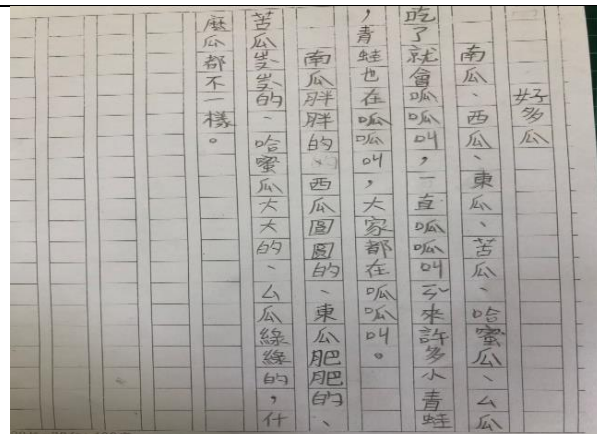 好多瓜
南瓜、西瓜、東瓜、苦瓜、哈蜜瓜、ㄙ瓜
吃了就會呱呱叫，一直呱呱叫來許多小青蛙
，青蛙也在呱呱叫，大家都在呱呱叫。
南瓜胖胖的西瓜圓圓的、東瓜肥肥的、
苦瓜的、哈蜜瓜大大的、ㄙ瓜綠綠的，什
麼瓜都不一樣。